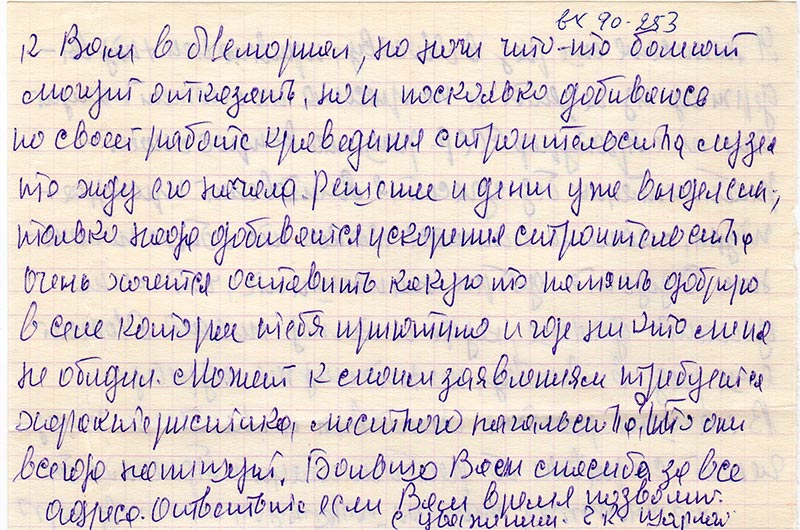 вх 90-253
к Вам в Мемориал, но ночи что-то болит
могут отказать, но и поскольку добиваюсь
по своей работе краеведния строительства музея
то жду его начала. Решение и денги уже выделени,
только надо добиватся ускорения строительства
очень хочется оставить какую то память добрую
в селе которое тебя приютило и где ни кто меня
не обидил. Может к моим заявлениям требуется
характеристика, местного начальства, что они
всегда напишут. Большо Вам спасибо за все
адреса. Ответьте если Вам время позволит.
с уважением. к